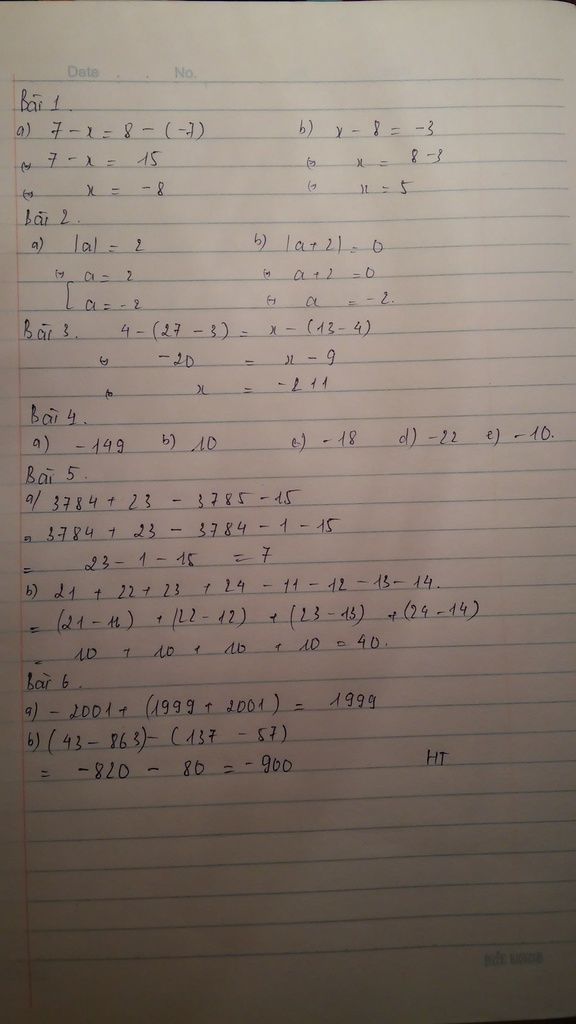 Date . . No.
Bài 1.
a) 7 - x = 8 - (-7) b) x - 8 = -3
⇔ 7 - x = 15 ⇔ x = 8-3
⇔ x = -8 ⇔ x = 5
Bài 2.
a) |a| = 2 b) |a+2| = 0
⇔ [ a = 2 ⇔ a+2 = 0
a = -2 ⇔ a = -2.
Bài 3. 4 - (27 - 3) = x - (13 - 4)
⇔ -20 = x - 9
⇔ x = -11
Bài 4.
a) -149 b) 10 c) -18 d) -22 e) -10.
Bài 5.
a) 3784 + 23 - 3785 - 15
= 3784 + 23 - 3784 - 1 - 15
= 23 - 1 - 15 = 7
b) 21 + 22 + 23 + 24 - 11 - 12 - 13 - 14.
= (21 - 11) + (22 - 12) + (23 - 13) + (24 - 14)
= 10 + 10 + 10 + 10 = 40.
Bài 6.
a) - 2001 + (1999 + 2001) = 1999
b) (43 - 863) - (137 - 57)
= -820 - 80 = -900 HT